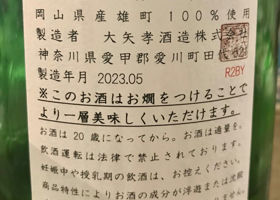 岡山県産雄町 100%使用
製造者 大矢孝酒造株式会社
神奈川県愛甲郡愛川町田代
製造年月 2023.05
R2BY
※このお酒はお燗をつけることで
より一層美味しくいただけます。
お酒は20歳になってから。お酒は適量を。
飲酒運転は法律で禁止されております。
妊娠中や授乳期の飲酒は、お控えください。
商品特性によりお酒の成分が浮遊または沈殿